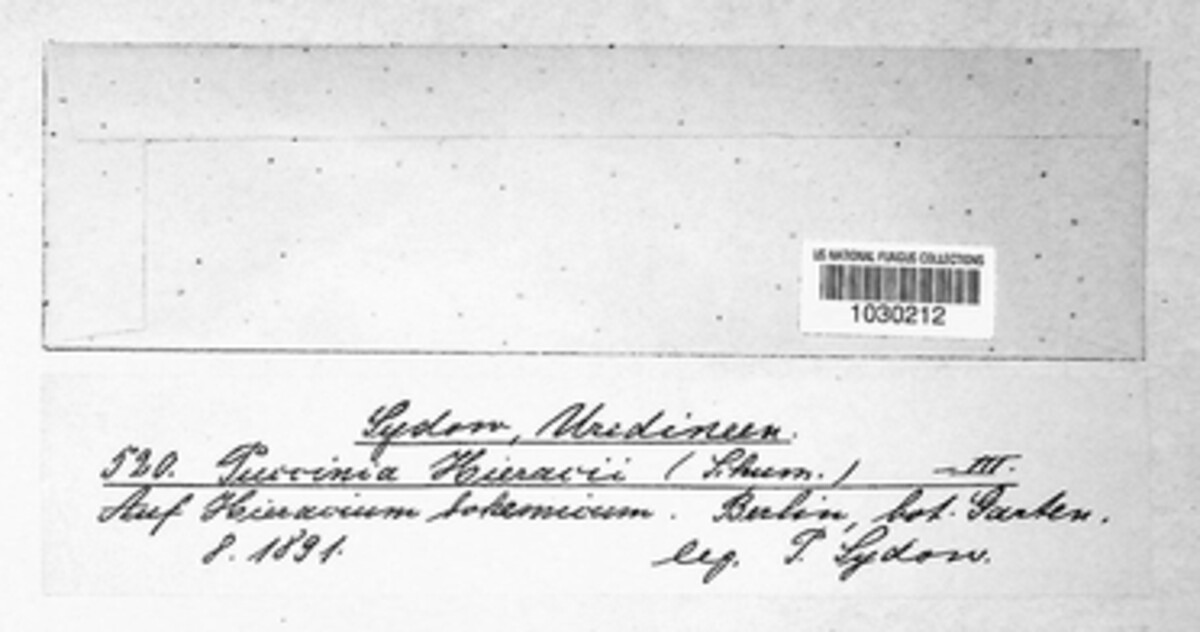 US NATIONAL FUNGUS COLLECTIONS
1030212
Sydow, Uredineen.
520. Puccinia Hieracii (Schum.) III.
Auf Hieracium bohemicum. Berlin, bot. Garten.
8. 1891. leg. P. Sydow.